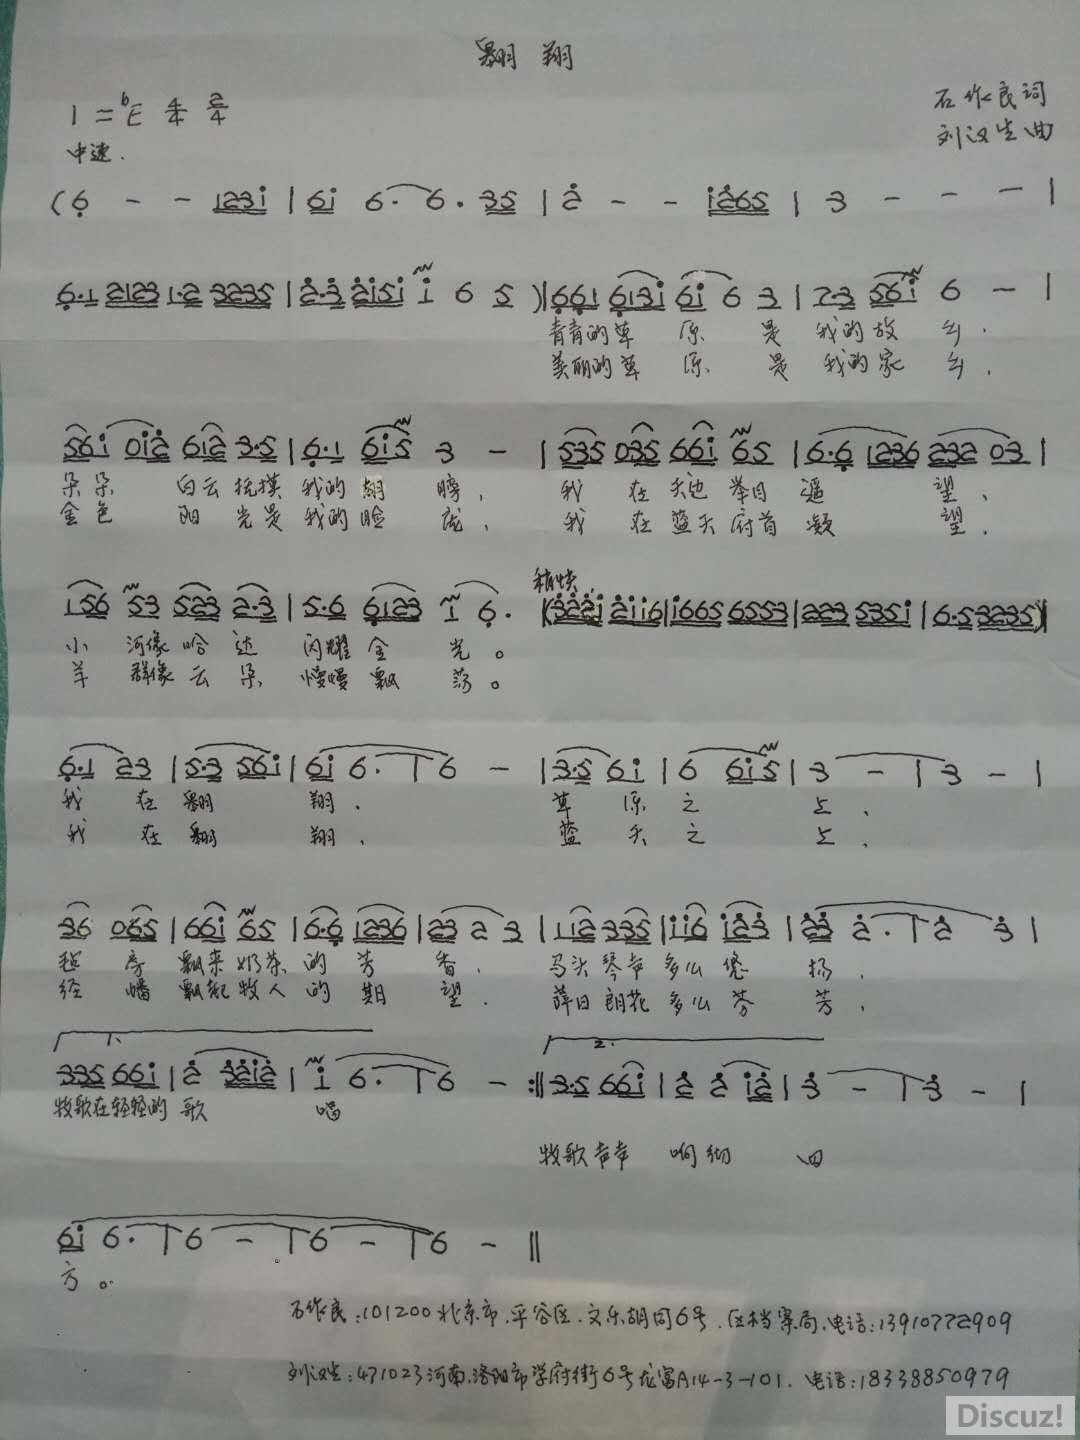 翱翔
1=♭E 4/4 2/4
石作良词
刘汉生曲
中速.
(6 - - 1231 | 61 6. 6. 35 | 2 - - 1265 | 3 - - - |
6.1 2123 1.2 3235 | 2.3 2151 1 6 5 )| 661 6131 61 6 3 | 2.3 561 6 - |
青青的草原是我的故乡.
美丽的草原是我的家乡.
561 012 612 3.5 | 6.1 615 3 - | 535 035 661 65 | 6.6 1236 232 03 |
朵朵 白云抚摸我的翅膀, 我 在天边举目遥 望、
金色 阳光是我的脸庞, 我 在蓝天府首凝 望.
稍快
156 53 523 2.3 | 5.6 6123 1 6. (3221 2116 | 1665 6553 | 223 5351 | 6.5 3235 )|
小 河像哈达 闪耀金 光。
羊 群像云朵 慢慢飘 荡。
6.1 23 | 5.3 561 | 61 6. | 6 - | 3.5 61 | 6 615 | 3 - | 3 - |
我 在翱 翔. 草 原之 上、
我 在翱 翔. 蓝 天之 上、
36 065 | 661 65 | 6.6 1236 | 23 2 3 | 112 335 | 116 123 | 23 2. | 2 3 |
毡 房 飘来奶茶的芳 香. 马头琴声多么悠 扬.
经 幡 飘起牧人的期 望. 萨日朗花多么芬 芳.
1. 2.
335 661 | 2 3212 | 1 6. | 6 - :‖ 3.5 661 | 2 2 12 | 3 - | 3 - |
牧歌在轻轻的 歌 唱
牧歌声声 响彻 四
61 6. | 6 - | 6 - | 6 - ‖
方。
石作良:101200北京市.平谷区.文乐胡同6号.区档案局.电话:13910772909
刘汉生:471023河南.洛阳市学府街6号龙富A14-3-101. 电话:18338850979
Discuz!